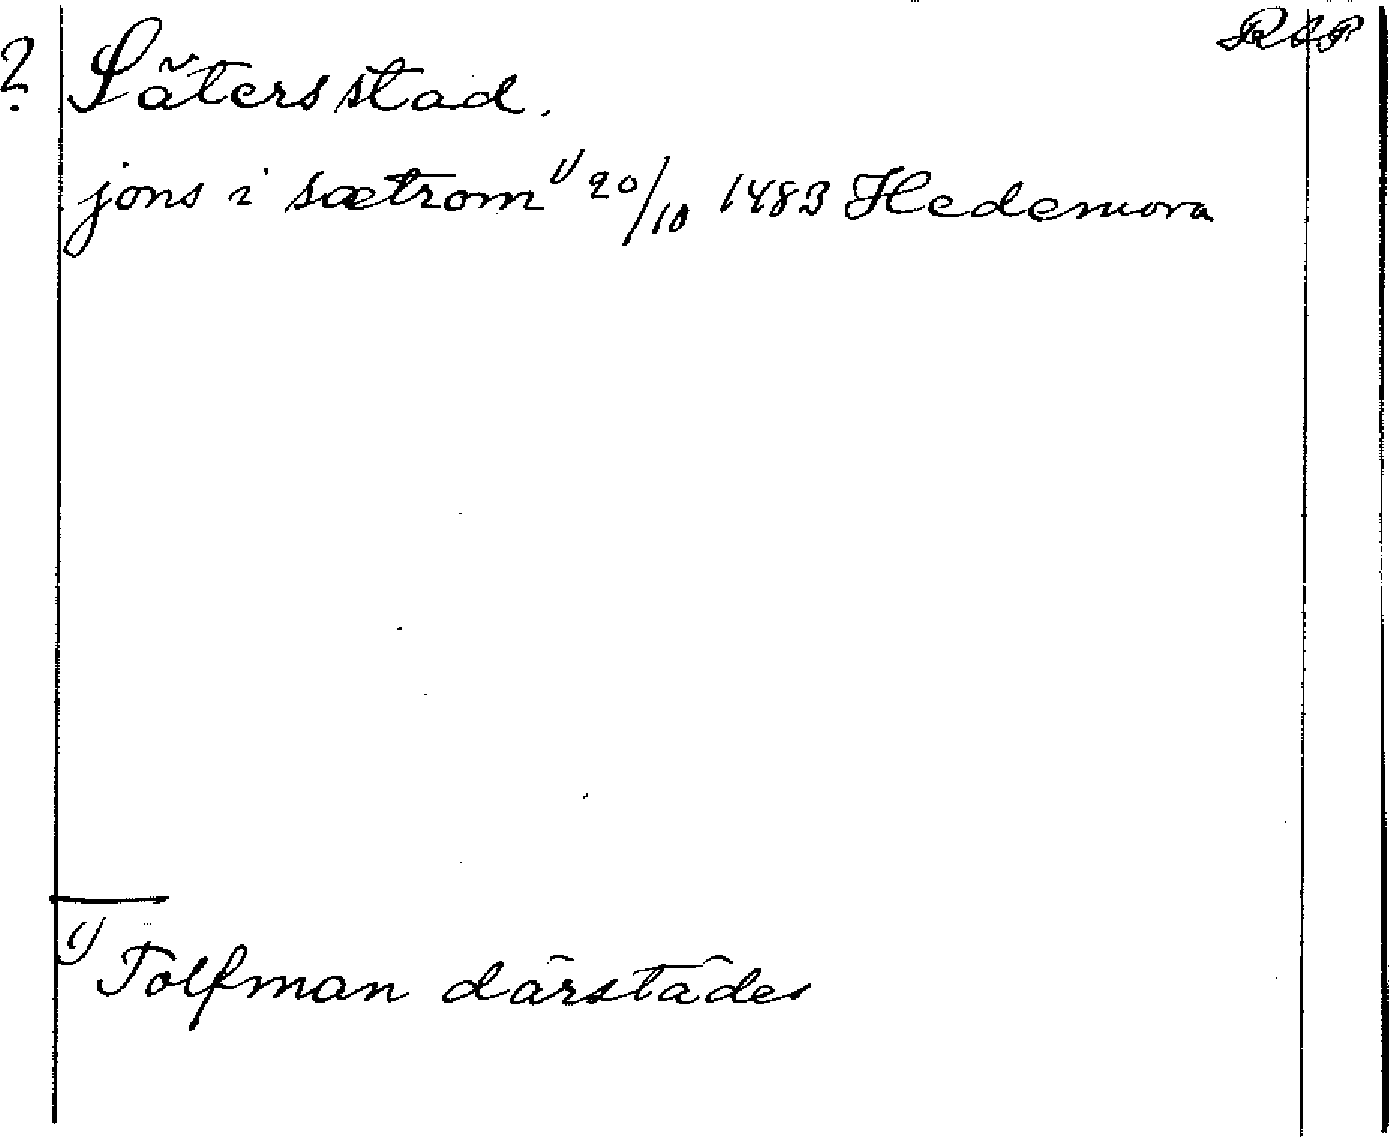 ? Säters stad. RAP
jöns i sætrom 1) 20/10 1483 Hedemora
1) Tolfman därstädes